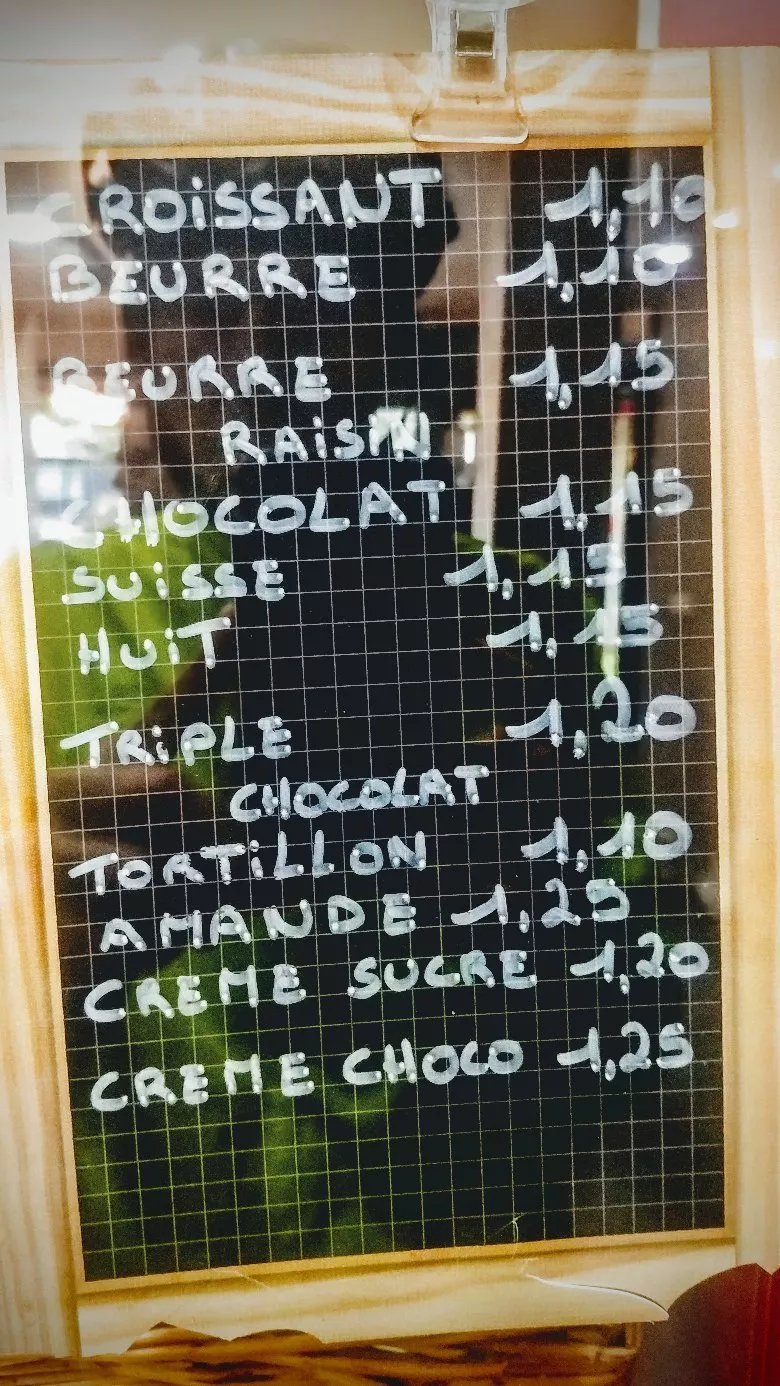 CROiSSANT 1,10
BEURRE 1,10
BEURRE 1,15
RAiSiN
CHOCOLAT 1,15
SUiSSE 1,15
HUiT 1,15
TRiPLE 1,20
CHOCOLAT
TORTiLLON 1,10
AMANDE 1,25
CREME SUCRE 1,20
CREME CHOCO 1,25